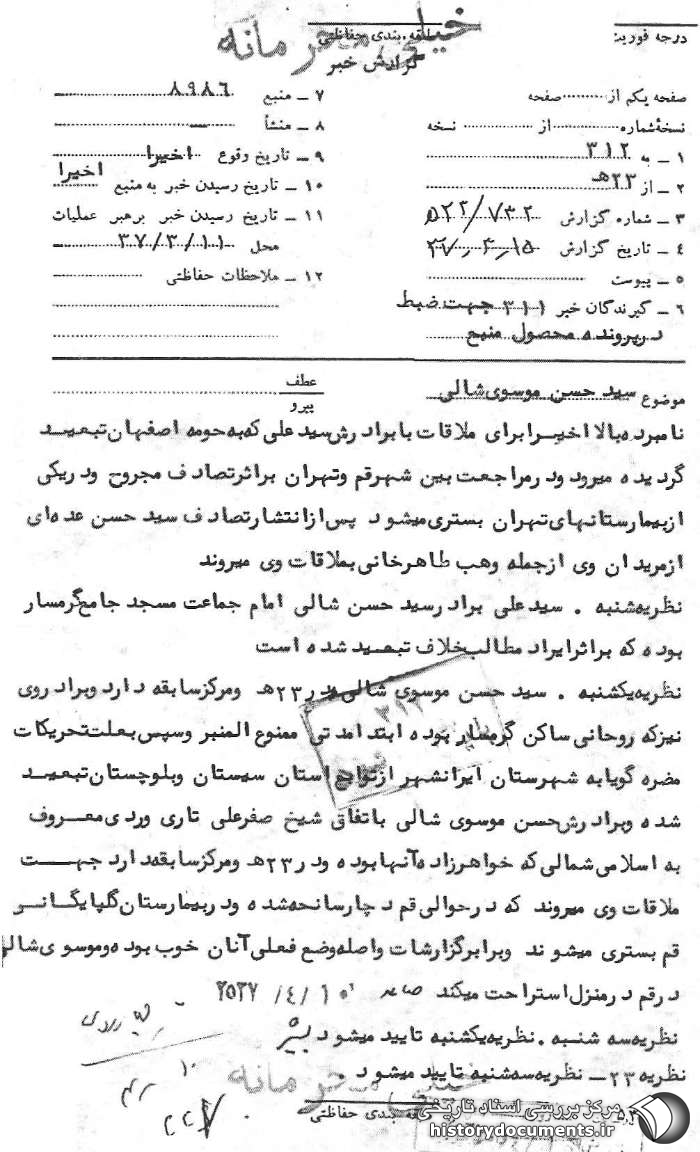 خیلی محرمانه
درجه فوریت
طبقه بندی حفاظتی
گزارش خبر
صفحه یکم از صفحه
نسخهٔ شماره از نسخه
۱ ـ به ۳۱۲
۲ ـ از ۲۳هـ
۳ ـ شماره گزارش ۵۲۲/۷۳۲
۴ ـ تاریخ گزارش
۵ ـ پیوست
۶ ـ گیرندگان خبر ۳۱۱ جهت ضبط
درپرونده محصول منبع
۷ ـ منبع ۸۹۸۶
۸ ـ منشأ
۹ ـ تاریخ وقوع اخیرا
۱۰ ـ تاریخ رسیدن خبر به منبع اخیرا
۱۱ ـ تاریخ رسیدن خبر برهبر عملیات
محل ۳۷/۳/۱۱
۱۲ ـ ملاحظات حفاظتی
موضوع سید حسن موسوی شالی
عطف
پیرو
نامبرده بالا اخیرا برای ملاقات با برادرش سید علی که به حومه اصفهان تبعید
گردیده میرود و در مراجعت بین شهر قم و تهران بر اثر تصادف مجروح و در یکی
از بیمارستانهای تهران بستری میشود پس از انتشار تصادف سید حسن عده‌ای
از مریدان وی از جمله وهب طاهرخانی بملاقات وی میروند
نظریه شنبه . سید علی برادر سید حسن شالی امام جماعت مسجد جامع گرمسار
بوده که بر اثر ایراد مطالب خلاف تبعید شده است
نظریه یکشنبه . سید حسن موسوی شالی در ۲۳هـ و مرکز سابقه دارد و برادر وی
نیز که روحانی ساکن گرمسار بوده ابتدا مدتی ممنوع المنبر و سپس بعلت تحریکات
مضره گویا به شهرستان ایرانشهر از توابع استان سیستان و بلوچستان تبعید
شده و برادرش حسن موسوی شالی باتفاق شیخ صفرعلی تاری وردی معروف
به اسلامی شمالی که خواهرزاده آنها بوده و در ۲۳هـ و مرکز سابقه دارد جهت
ملاقات وی میروند که در حوالی قم دچار سانحه شده و در بیمارستان گلپایگانی
قم بستری میشوند و برابر گزارشات واصله وضع فعلی آنان خوب بوده و موسوی شالی
در قم در منزل استراحت میکند ۲۵۳۷/۴/۱۰
نظریه سه شنبه . نظریه یکشنبه تایید میشود
نظریه ۲۳ ـ نظریه سه شنبه تایید میشود .
خیلی محرمانه
طبقه بندی حفاظتی
مرکز بررسی اسناد تاریخی
historydocuments.ir